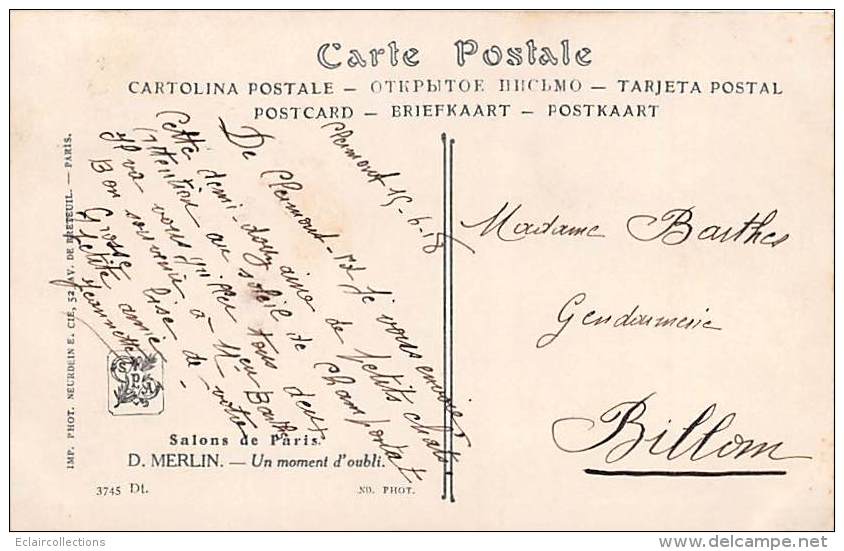 Carte Postale
CARTOLINA POSTALE — ОТКРЫТОЕ ПИСЬМО — TARJETA POSTAL
POSTCARD — BRIEFKAART — POSTKAART
Clermont 15-6-18
De Clermont-Fd je vous envoie
Cette demi-douzaine de petits chats
au soleil de Champortat
tous deux
Il va vous lise
à Mr Barthes
Bon souvenir de votre
Grosse amie
petite Jeannette
Madame Barthes
Gendarmerie
Billom
IMP. PHOT. NEURDEIN E. CIE, 52, AV. DE BRETEUIL. — PARIS.
SPA
Salons de Paris.
D. MERLIN. — Un moment d'oubli.
3745 Dt.
ND. PHOT.
Eclaircollections
www.delcampe.net